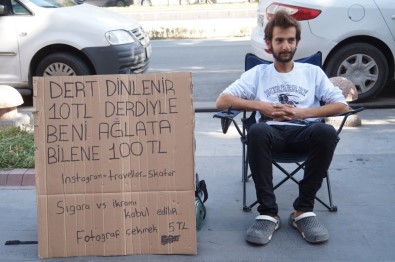 DERT DİNLENİR
10TL DERDİYLE
BENİ AĞLATA
BİLENE 100TL
Instagram: traveller_skater
Sigara vs ikramı
kabul edilir
Fotoğraf çekmek 5TL